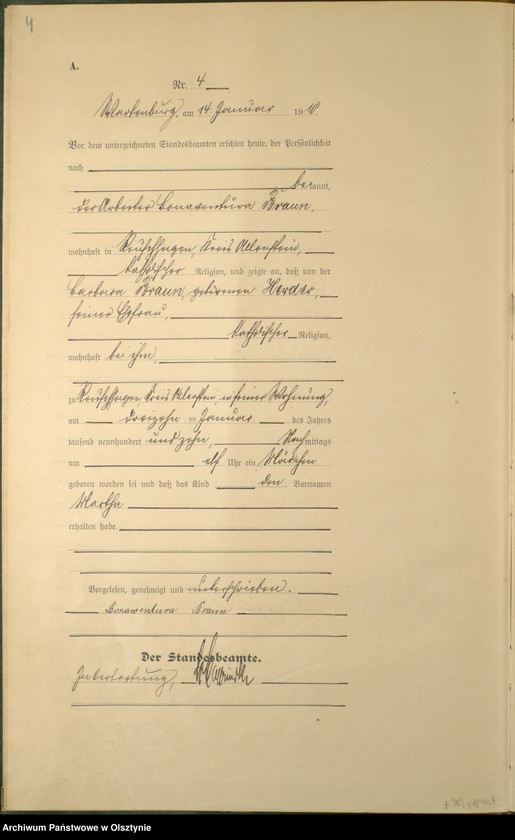 4
A.
Nr. 4
Wartenburg, am 14 Januar 1910
Vor dem unterzeichneten Standesbeamten erschien heute, der Persönlichkeit
nach
bekannt,
der Arbeiter Bonaventura Braun,
wohnhaft in Reuschhagen, Kreis Allenstein,
katholischer Religion, und zeigte an, daß von der
Barbara Braun, geborenen Herder,
seiner Ehefrau,
katholischer Religion,
wohnhaft bei ihm,
zu Reuschhagen Kreis Allenstein, in seiner Wohnung,
am dreizehn ten Januar des Jahres
tausend neunhundert und zehn, Nachmittags
um elf Uhr ein Mädchen
geboren worden sei und daß das Kind den Vornamen
Martha
erhalten habe.
Vorgelesen, genehmigt und unterschrieben.
Bonawentura Braun
Der Standesbeamte.
In Vertretung,
Archiwum Państwowe w Olsztynie